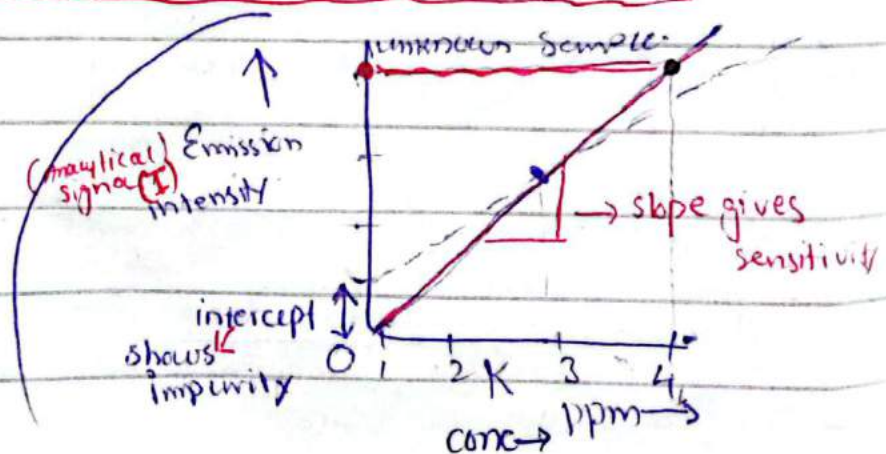 unknown sample.
(analytical signal (I)) Emission intensity
→ slope gives sensitivity
intercept
shows impurity
0 1 2 K 3 4
conc→ ppm→